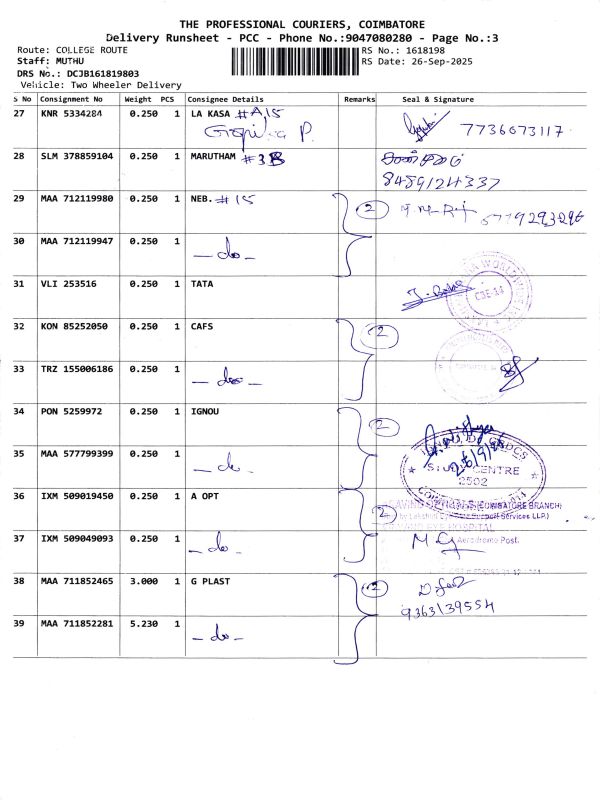 THE PROFESSIONAL COURIERS, COIMBATORE
Delivery Runsheet - PCC - Phone No.:9047080280 - Page No.:3
Route: COLLEGE ROUTE
RS No.: 1618198
Staff: MUTHU
RS Date: 26-Sep-2025
DRS No.: DCJB161819803
Vehicle: Two Wheeler Delivery
S No Consignment No Weight PCS Consignee Details Remarks Seal & Signature
27 KNR 5334284 0.250 1 LA KASA #A,15
7736073117
28 SLM 378859104 0.250 1 MARUTHAM #3B
8489124337
29 MAA 712119980 0.250 1 NEB. #15 2
30 MAA 712119947 0.250 1 - do -
31 VLI 253516 0.250 1 TATA
32 KON 85252050 0.250 1 CAFS 2
33 TRZ 155006186 0.250 1 - do -
34 PON 5259972 0.250 1 IGNOU 2
35 MAA 577799399 0.250 1 - do -
26/9/25
STUDY CENTRE
2502
36 IXM 509019450 0.250 1 A OPT 2
(COIMBATORE BRANCH)
37 IXM 509049093 0.250 1 - do -
EYE HOSPITAL
Aerodrome Post,
38 MAA 711852465 3.000 1 G PLAST 2
9363139554
39 MAA 711852281 5.230 1 - do -